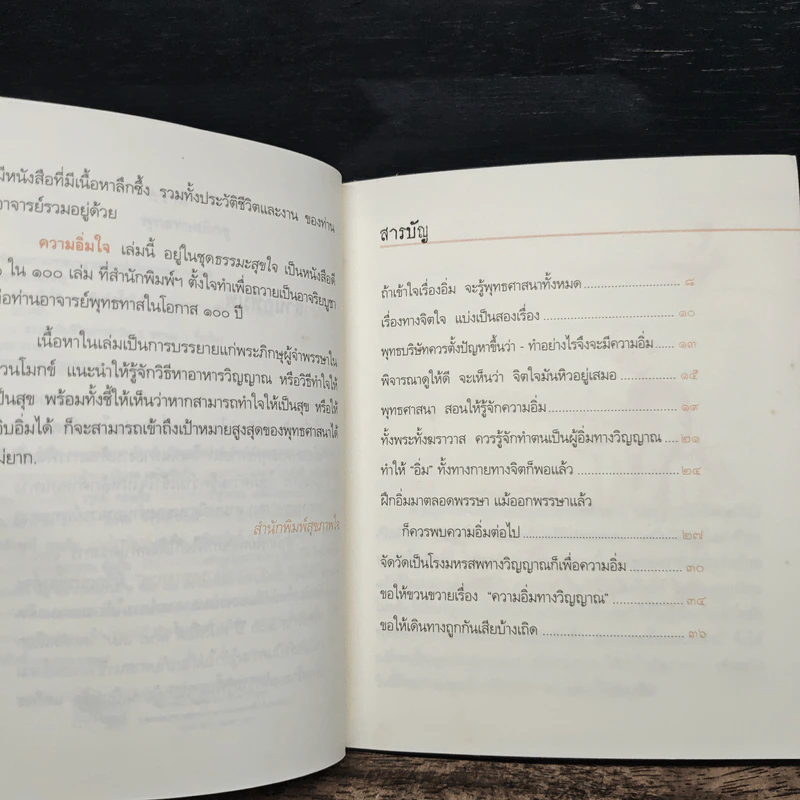 มีหนังสือที่มีเนื้อหาลึกซึ้ง รวมทั้งประวัติชีวิตและงาน ของท่าน
อาจารย์รวมอยู่ด้วย
ความอิ่มใจ เล่มนี้ อยู่ในชุดธรรมะสุขใจ เป็นหนังสือดี
๑ ใน ๑๐๐ เล่ม ที่สำนักพิมพ์ฯ ตั้งใจทำเพื่อถวายเป็นอาจริยบูชา
ท่านอาจารย์พุทธทาสในโอกาส ๑๐๐ ปี
เนื้อหาในเล่มเป็นการบรรยายแก่พระภิกษุผู้จำพรรษาใน
สวนโมกข์ แนะนำให้รู้จักวิธีหาอาหารวิญญาณ หรือวิธีทำใจให้
เป็นสุข พร้อมทั้งชี้ให้เห็นว่าหากสามารถทำใจให้เป็นสุข หรือให้
อิ่มได้ ก็จะสามารถเข้าถึงเป้าหมายสูงสุดของพุทธศาสนาได้
ไม่ยาก.
สำนักพิมพ์สุขภาพใจ
สารบัญ
ถ้าเข้าใจเรื่องอิ่ม จะรู้พุทธศาสนาทั้งหมด ๘
เรื่องทางจิตใจ แบ่งเป็นสองเรื่อง ๑๐
พุทธบริษัทควรตั้งปัญหาขึ้นว่า - ทำอย่างไรจึงจะมีความอิ่ม ๑๓
พิจารณาดูให้ดี จะเห็นว่า จิตใจมันหิวอยู่เสมอ ๑๕
พุทธศาสนา สอนให้รู้จักความอิ่ม ๑๙
ทั้งพระทั้งฆราวาส ควรรู้จักทำตนเป็นผู้อิ่มทางวิญญาณ ๒๑
ทำให้ "อิ่ม" ทั้งทางกายทางจิตก็พอแล้ว ๒๔
ฝึกอิ่มมาตลอดพรรษา แม้ออกพรรษาแล้ว
ก็ควรพบความอิ่มต่อไป ๒๗
จัดวัดเป็นโรงมหรสพทางวิญญาณก็เพื่อความอิ่ม ๓๐
ขอให้ขวนขวายเรื่อง "ความอิ่มทางวิญญาณ" ๓๔
ขอให้เดินทางถูกกันเสียบ้างเถิด ๓๖